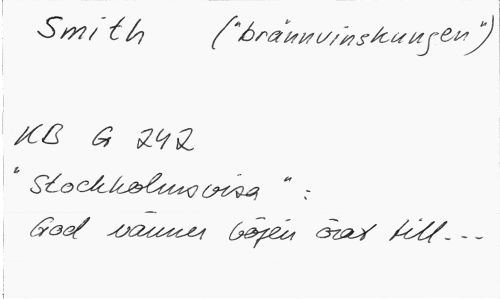 Smith ("brännvinskungen")
KB G 242
"Stockholmsvisa":
God vänner böjen örat till...